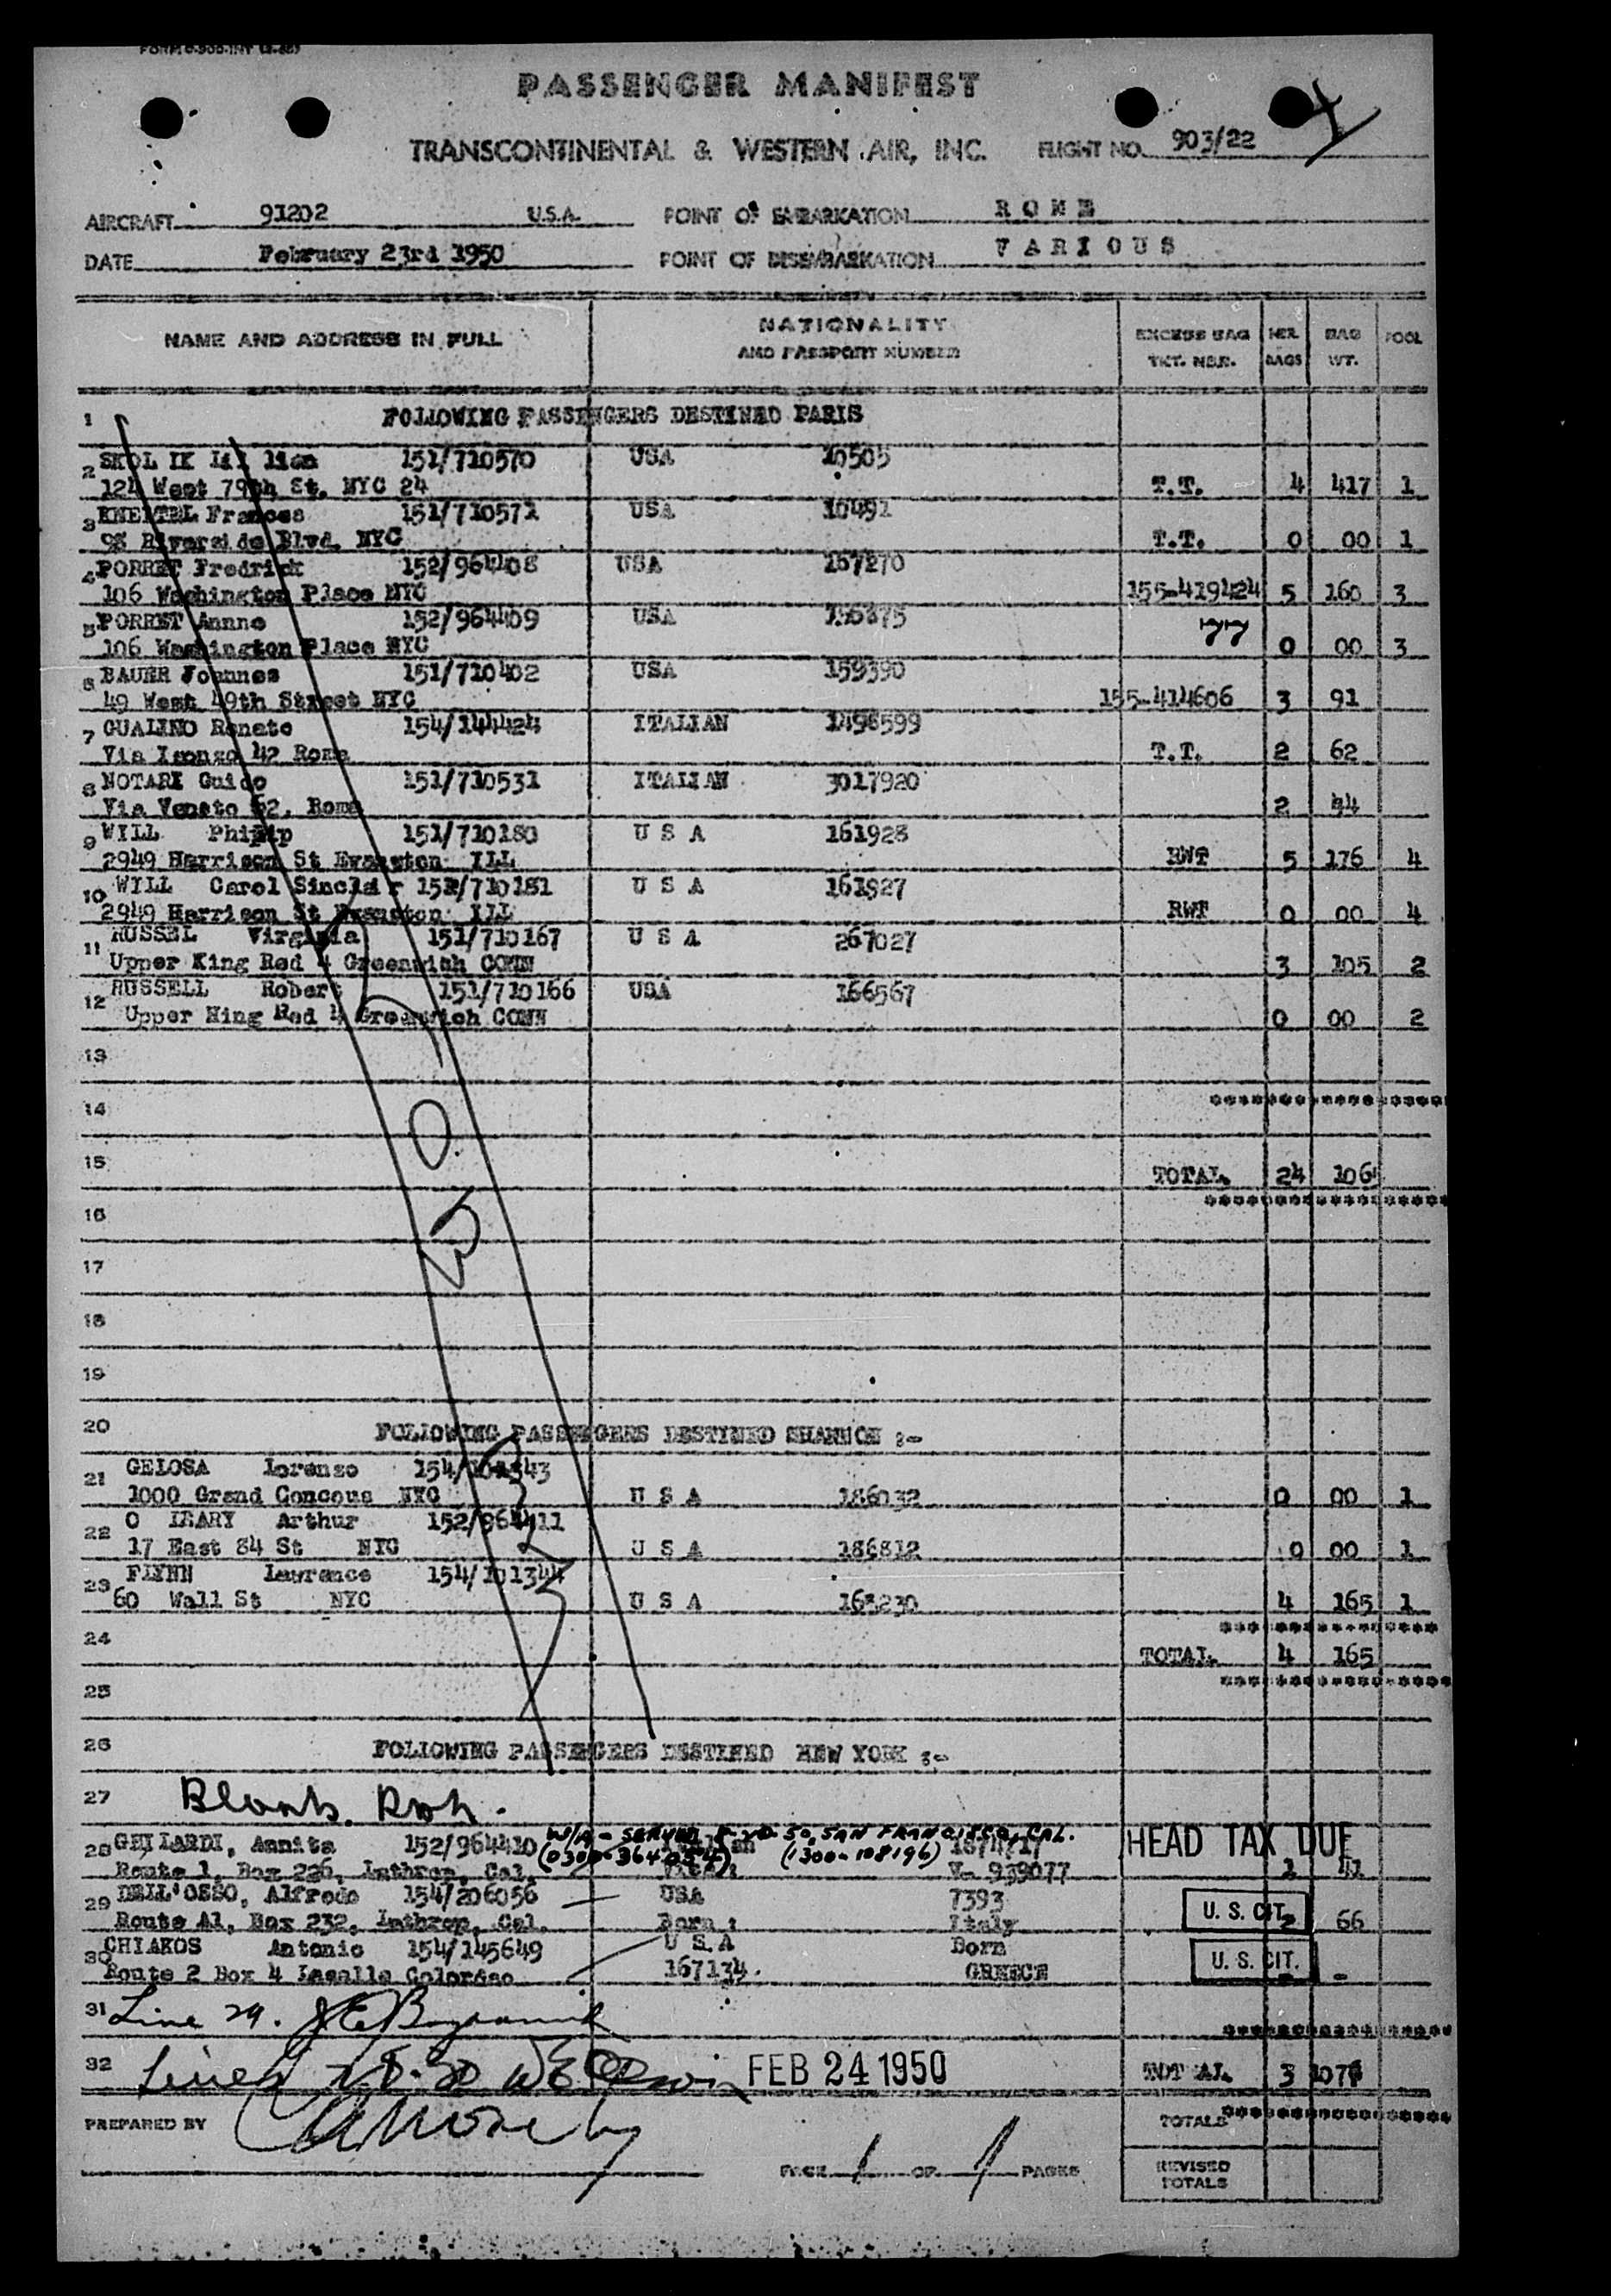 PASSENGER MANIFEST
TRANSCONTINENTAL & WESTERN AIR, INC. FLIGHT NO. 903/22
AIRCRAFT 91202 U.S.A. POINT OF EMBARKATION ROME
DATE February 23rd 1950 POINT OF DISEMBARKATION VARIOUS
NAME AND ADDRESS IN FULL NATIONALITY AND PASSPORT NUMBER EXCESS BAG TKT. NBR. NBR. BAGS BAG WT. POOL
1 FOLLOWING PASSENGERS DESTINED PARIS
2 SKOL IK Lil lian 151/710570 USA 10505
124 West 79th St. NYC 24 T.T. 4 417 1
3 Frances 151/710571 USA 10491
98 Riverside Blvd. NYC T.T. 0 00 1
4 PORRET Fredrick 152/964408 USA 167270
106 Washington Place NYC 155-419424 5 160 3
5 PORRET Annne 152/964409 USA
106 Washington Place NYC 0 00 3
6 BAUER Joannes 151/710402 USA 159390
49 West 49th Street NYC 155-414606 3 91
7 GUALINO Renato 154/144424 ITALIAN 1498599
Via Isonzo 42 Rome T.T. 2 62
8 NOTARI Guido 151/710531 ITALIAN 3017920
Via Veneto 62, Rome 2 44
9 WILL Philip 151/710180 U S A 161928
2949 Harrison St Evanston ILL RWT 5 176 4
10 WILL Carol Sinclair 151/710181 U S A 161927
2949 Harrison St Evanston ILL RWT 0 00 4
11 RUSSEL Virginia 151/710167 U S A 267027
Upper King Red 4 Greenwich CONN 3 105 2
12 RUSSELL Robert 151/710166 USA 166567
Upper Hing Red 4 Greenwich CONN 0 00 2
13
14 ********************
15 TOTAL 24 106
16 ********************
17
18
19
20 FOLLOWING PASSENGERS DESTINED SHANNON :-
21 GELOSA Lorenzo
1000 Grand Concous NYC U S A 186032 0 00 1
22 O LEARY Arthur 152/964411
17 East 84 St NYC U S A 186812 0 00 1
23 FLYNN Lawrence 154/101344
60 Wall St NYC U S A 0 4 165 1
24 TOTAL 4 165
25
26 FOLLOWING PASSENGERS DESTINED NEW YORK :-
27
W/A - 50, SAN FRANCISCO, CAL.
28 GHILARDI, Annita 152/964410 (0300-364054) (1300-108196) HEAD TAX DUE
Route 1, Box 226, Lathrop, Cal. V- 939077 1 41
29 DELL'OSSO, Alfredo 154/206056 USA 7393 U. S. CIT.
Route A1, Box 232, Lathrop, Cal. Born : Italy 2 66
30 CHIAKOS Antonio 154/145649 U S.A Born U. S. CIT.
Route 2 Box 4 Lasalle Colorado 167134. GREECE - -
31 Line 29.
32 Lines 28-30 FEB 24 1950 TOT AL. 3 107
PREPARED BY TOTALS
PAGE 1 OF 1 PAGES REVISED TOTALS